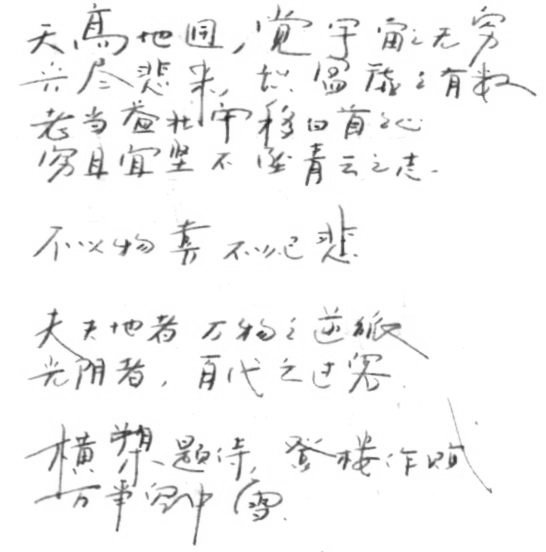 天高地迥,觉宇宙之无穷
兴尽悲来,识盈虚之有数
老当益壮宁移白首之心
穷且益坚不坠青云之志.
不以物喜不以己悲
夫天地者万物之逆旅
光阴者,百代之过客.
横槊题诗,登楼作赋
万事空中雪.